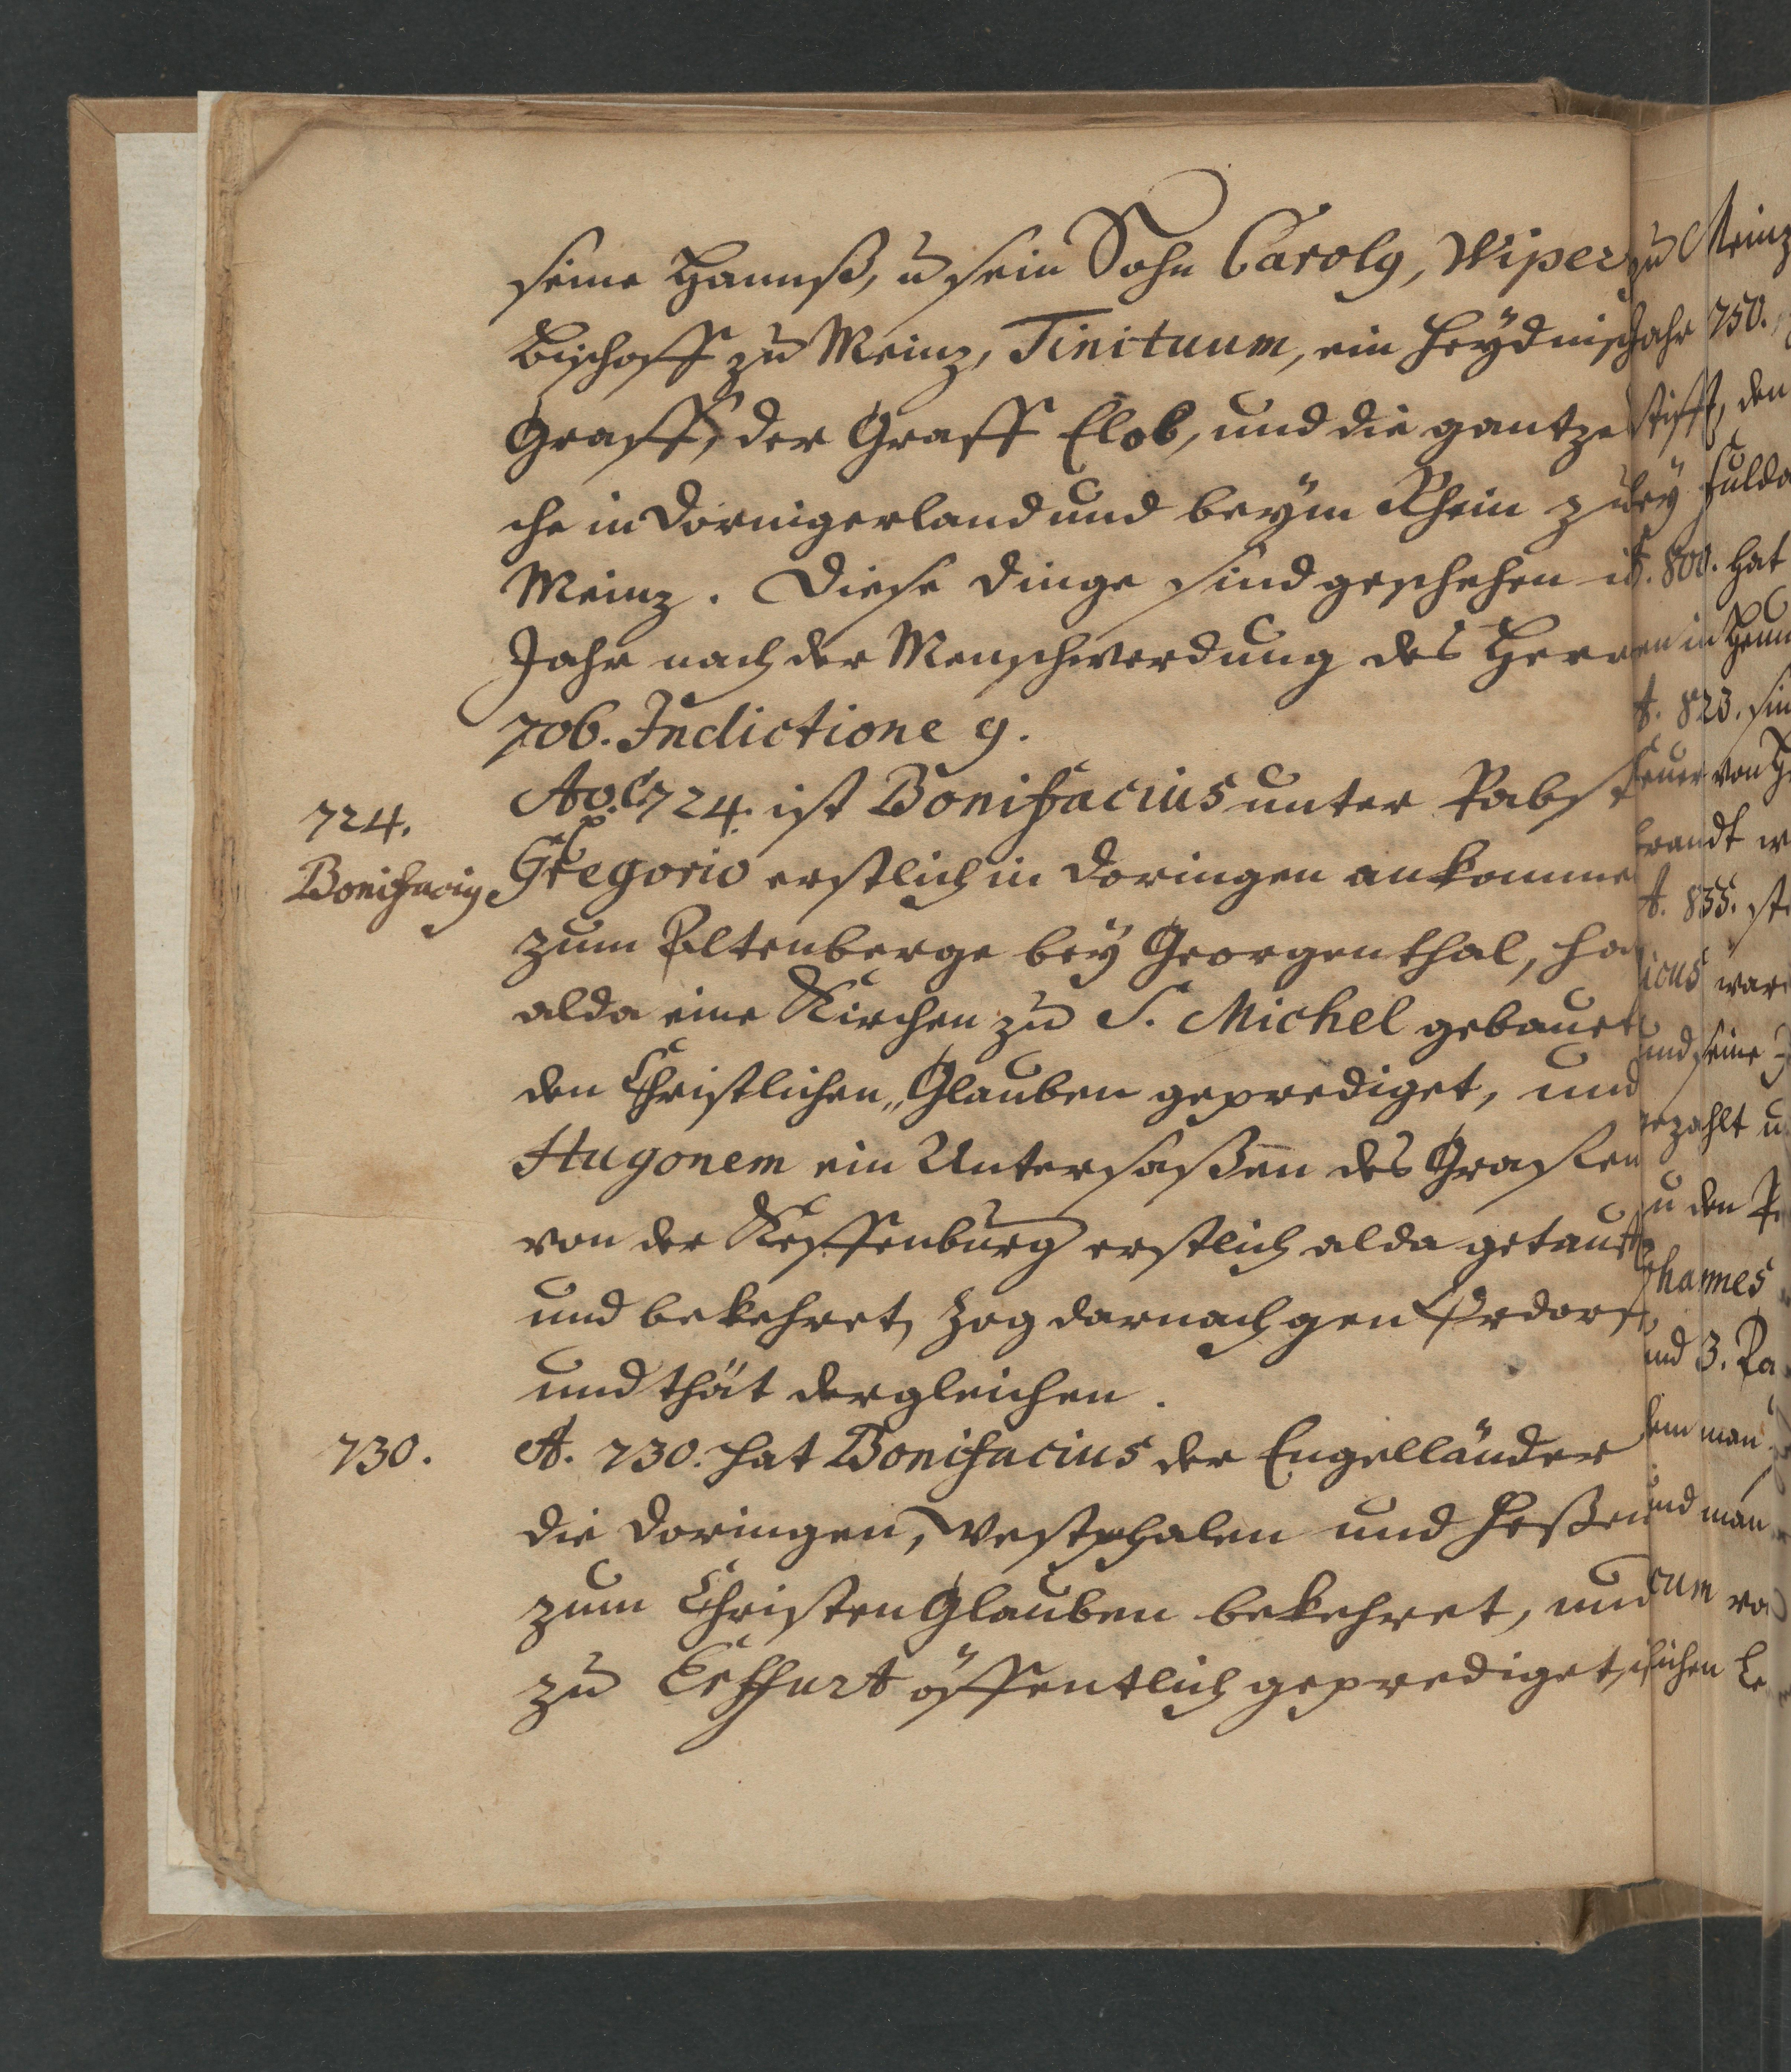 seine Hannß, u sein Sohn Carolg, Wiper
Bischoff zu Meinz, Tinituum, ein Heydnisch
Graff, der Graff Elob, und die gantze
che in Dornigerland und beym Rhein z
Meinz. Diese Dinge sind geschehen i
Jahr nach der Menschwerdung des Herren
706. Indictione 9.
724. Bonifacig
Ao. 724. ist Bonifacius unter Pabst
Gregorio erstlich in Doringen ankomme
zum Altenberge bey Georgenthal, ha
alda eine Kirchen zu S. Michel gebauet
den Christlichen Glauben geprediget, und
Hugonem ein Untersaßen des Grafen
von der Keffenburg erstlich alda getauft
und bekehret, zog darnach gen Ordorf
und thät dergleichen.
730.
A. 730. hat Bonifacius der Engelländer
die Doringen, Westphalen und Heßen
zum Christen Glauben bekehret, und
zu Erffurt öffentlich geprediget,
zu Meinz
Jahr 750.
Stifft, den
bey Fulda
A. 800. hat
en in
A. 823. sin
Feuer von
brandt w
A. 855. st
icus war
und seine
gezahlt u
zu den P
Johannes
und 3. Ra
dem man
und man
cum vo
lichen Le